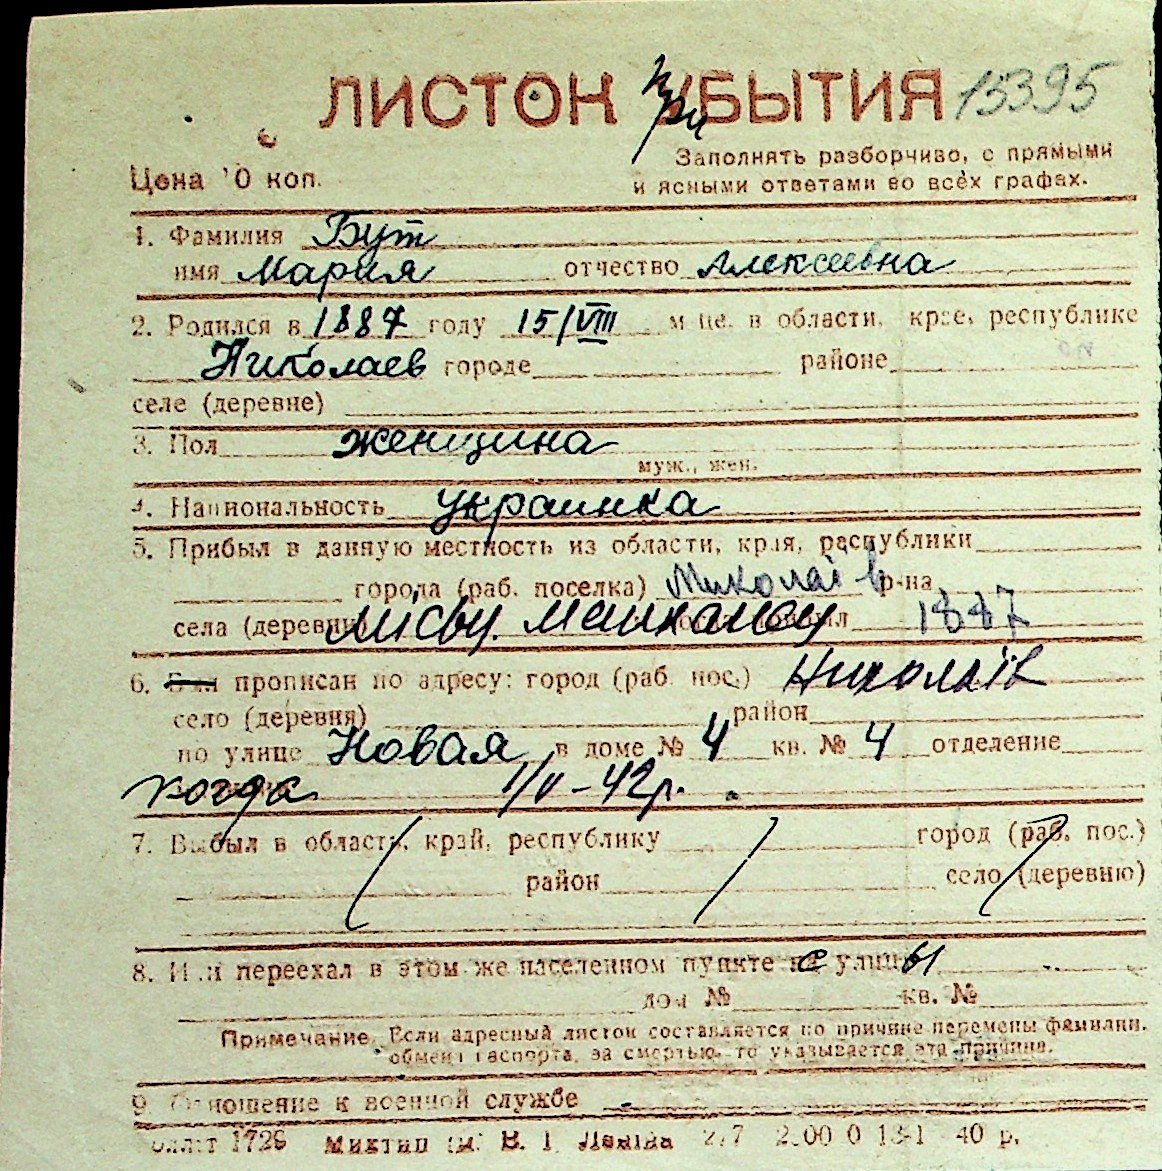 ЛИСТОК при БЫТИЯ 15395
Цена 10 коп.
Заполнять разборчиво, с прямыми
и ясными ответами во всех графах.
1. Фамилия Бут
имя Мария отчество Алексеевна
2. Родился в 1887 году 15/VIII м-це, в области, крае, республике
Николаев городе районе
селе (деревне)
3. Пол женщина
муж., жен.
4. Национальность украинка
5. Прибыл в данную местность из области, края, республики
города (раб. поселка) Миколаїв р-на
села (деревни) 1887
6. Был прописан по адресу: город (раб. пос.) Николаїв
село (деревня) район
по улице Новая в доме № 4 кв. № 4 отделение
когда 1/V-42р.
7. Выбыл в область, край, республику город (раб. пос.)
район село (деревню)
8. Или переехал в этом же населенном пункте с улицы
дом № кв. №
Примечание. Если адресный листок составляется по причине перемены фамилии,
обмена паспорта, за смертью, то указывается эта причина.
9. Отношение к военной службе
1726 В. І. Леніна 40 р.